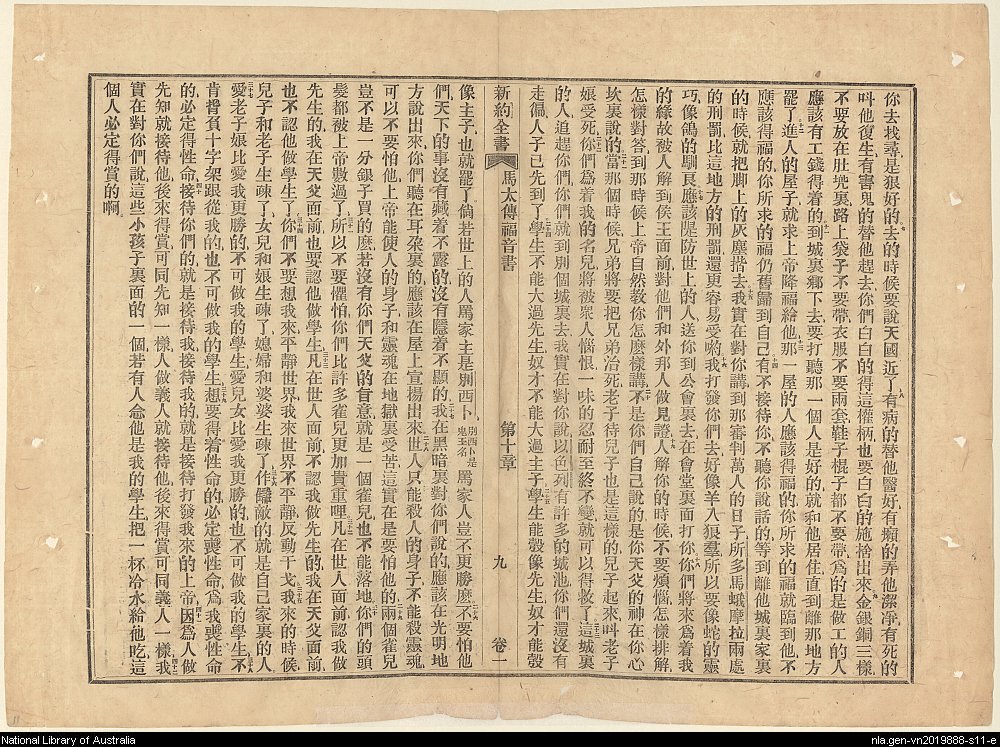 你去找尋是狠好的去的時候要說天國近了有病的替他醫好有癩的弄他潔淨有死的
叫他復生有害鬼的替他趕去你們白白的得這權柄也要白白的施捨出來金銀銅三樣
不要放在肚兜裏路上袋子不要帶衣服不要兩套鞋子棍子都不要帶爲的是做工的人
應該有工錢得着的到城裏鄉下去要打聽那一個人是好的就和他居住直到離那地方
罷了進人的屋子就求上帝降福給他那一屋的人應該得福的你所求的福就臨到他不
應該得福的你所求的福仍舊歸到自己有不接待你不聽你說話的等到離他城裏家裏
的時候就把脚上的灰塵揩去我實在對你講到那審判萬人的日子所多馬蛾摩拉兩處
的刑罰比這地方的刑罰還更容易受喲我打發你們去好像羊入狼羣所以要像蛇的靈
巧像鴿的馴良應該隄防世上的人送你到公會裏去在會堂裏面打你你們將來爲着我
的緣故被人解到侯王面前對他們和外邦人做見證人解你的時候不要煩惱怎樣排解
怎樣對答到那時候上帝自然教你怎麽樣講不是你們自己說的是你天父的神在你心
坎裏說的當那個時候兄弟將要把兄弟治死老子待兒子也是這樣的兒子起來叫老子
娘受死你們爲着我的名兒將被眾人惱恨一味的忍耐至終不變就可以得救了這城裏
的人追趕你們你們就到別個城裏去我實在對你說以色列有許多的城池你們還沒有
走徧人子已先到了學生不能大過先生奴才不能大過主子學生能彀像先生奴才能彀
新約全書 馬太傳福音書 第十章 九 卷一
像主子也就罷了倘若世上的人罵家主是別西卜別西卜是鬼王名罵家人豈不更勝麽不要怕他
們天下的事沒有藏着不露的沒有隱着不顯的我在黑暗裏對你們說的應該在光明地
方說出來你們聽在耳朶裏的應該在屋上宣揚出來世人只能殺人的身子不能殺靈魂
可以不要怕他上帝能使人的身子和靈魂在地獄裏受苦這實在是要怕他的兩個雀兒
豈不是一分銀子買的麽若沒有你們天父的旨意就是一個雀兒也不能落地你們的頭
髮都被上帝數過了所以不要懼怕你們比許多雀兒更加貴重哩凡在世人面前認我做
先生的我在天父面前也要認他做學生凡在世人面前不認我做先生的我在天父面前
也不認他做學生了你們不要想我來平靜世界我來世界不平靜反動干戈我來的時候
兒子和老子生疎了女兒和娘生疎了媳婦和婆婆生疎了作讎敵的就是自己家裏的人
愛老子娘比愛我更勝的不可做我的學生愛兒女比愛我更勝的也不可做我的學生不
肯揹負十字架跟從我的也不可做我的學生想要得着性命的必定喪性命爲我喪性命
的必定得性命接待你們的就是接待我接待我的就是接待打發我來的上帝因爲人做
先知就接待他後來得的賞可同先知一樣人做義人就接待他後來得賞可同義人一樣我
實在對你們說這些小孩子裏面的一個若有人念他是我的學生把一杯冷水給他吃這
個人必定得賞的啊
National Library of Australia
nla.gen-vn2019888-s11-e